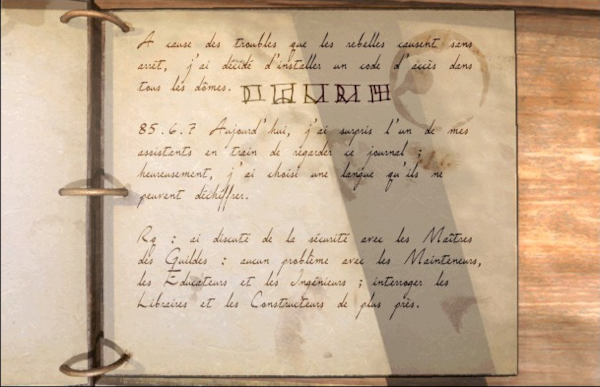 A cause des troubles que les rebelles causent sans
arrêt, j'ai décidé d'installer un code d'accès dans
tous les dômes.
85.6.7 Aujourd'hui, j'ai surpris l'un de mes
assistants en train de regarder ce journal ;
heureusement, j'ai choisi une langue qu'ils ne
peuvent déchiffrer.
Rq : ai discuté de la sécurité avec les Maîtres
des Guildes : aucun problème avec les Mainteneurs,
les Educateurs et les Ingénieurs ; interroger les
Libraires et les Constructeurs de plus près.